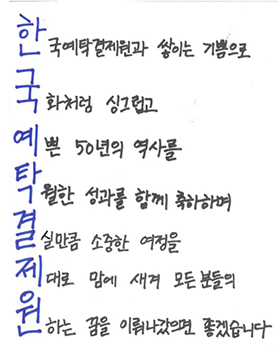 한국예탁결제원과 쌓이는 기쁨으로
국화처럼 싱그럽고
예쁜 50년의 역사를
탁월한 성과를 함께 축하하며
결실만큼 소중한 여정을
제대로 맘에 새겨 모든분들의
원하는 꿈을 이뤄나갔으면 좋겠습니다